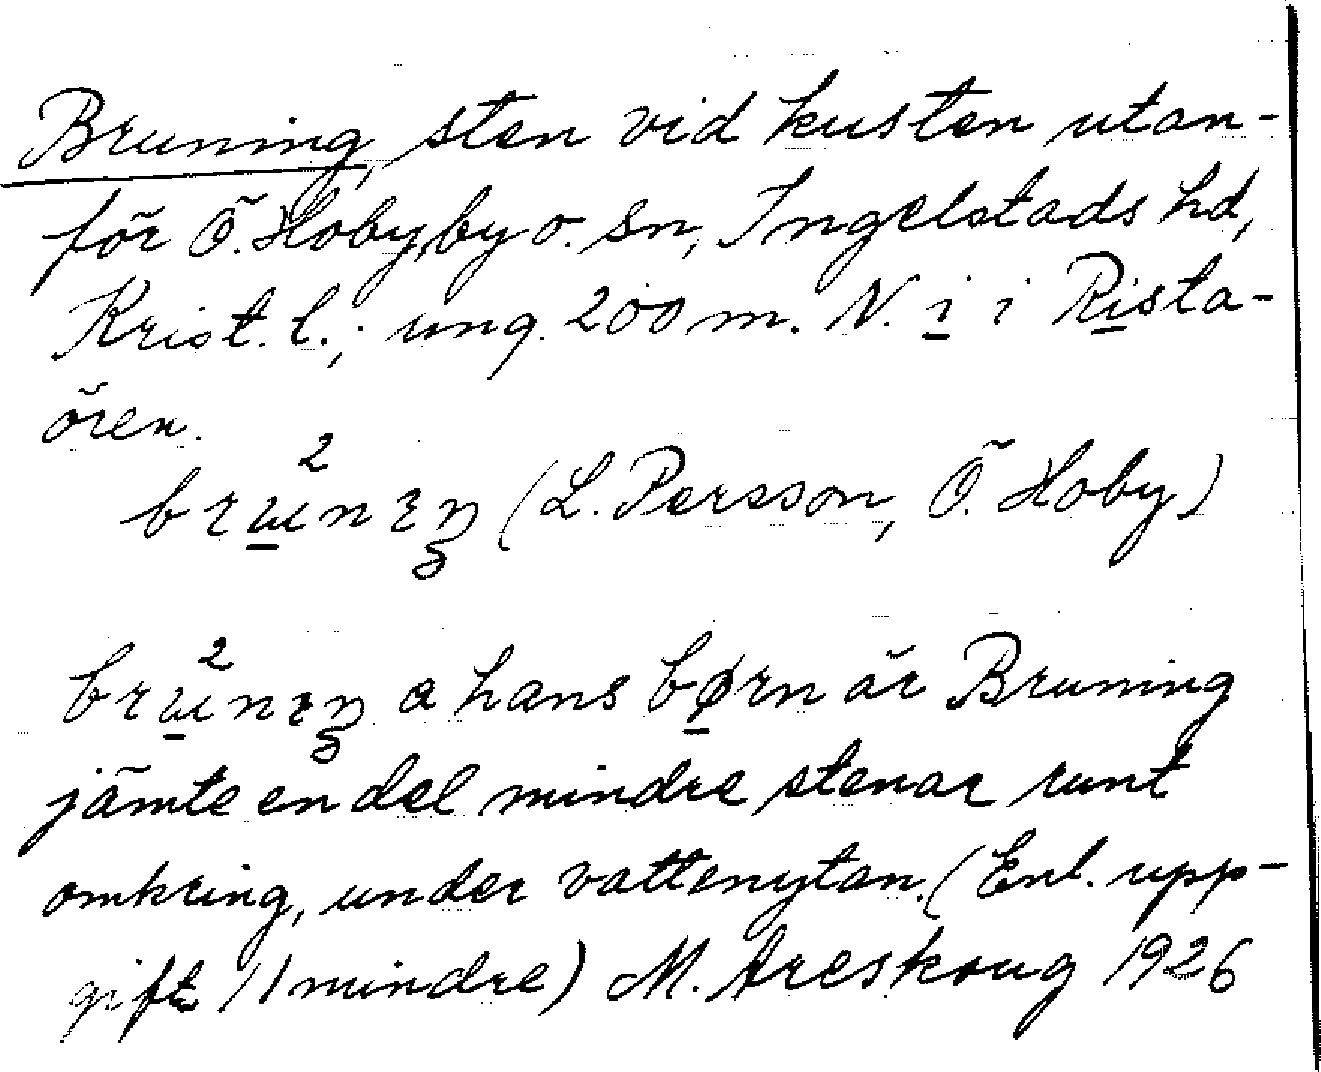 Bruning, sten vid kusten utan-
för Ö. Hoby, by o. sn, Ingelstads hd,
Krist. l.; ung. 200 m. N. i i Rista-
ören.
2
brɯnıŋ (L. Persson, Ö. Hoby)
2
brɯnıŋ a hans børn är Bruning
jämte en del mindre stenar runt
omkring, under vattenytan. (Enl. upp-
gift 11 mindre) M. Areskoug 1926